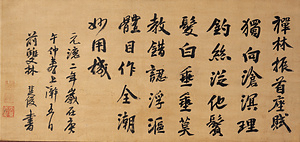 禪林振首座賦
獨向滄溟理
釣絲從他鬢
髮白垂垂莫
教錯認浮漚
體目作全潮
妙用機
元祿二年歲在庚
午仲春上澣五日
前雙林 書